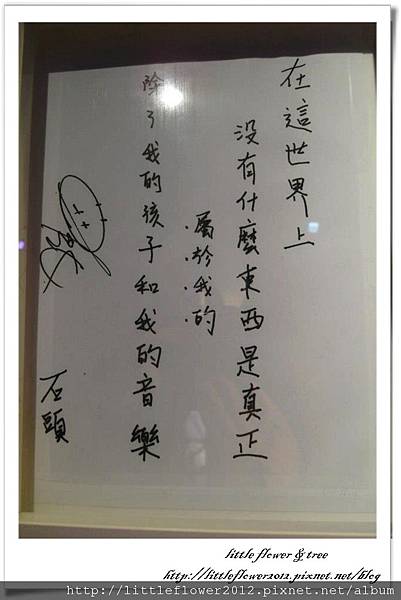 在這世界上
沒有什麼東西是真正
屬於我的
除了我的孩子和我的音樂
石頭
little flower & tree
http://littleflower2012.pixnet.net/blog
http://littleflower2012.pixnet.net/album